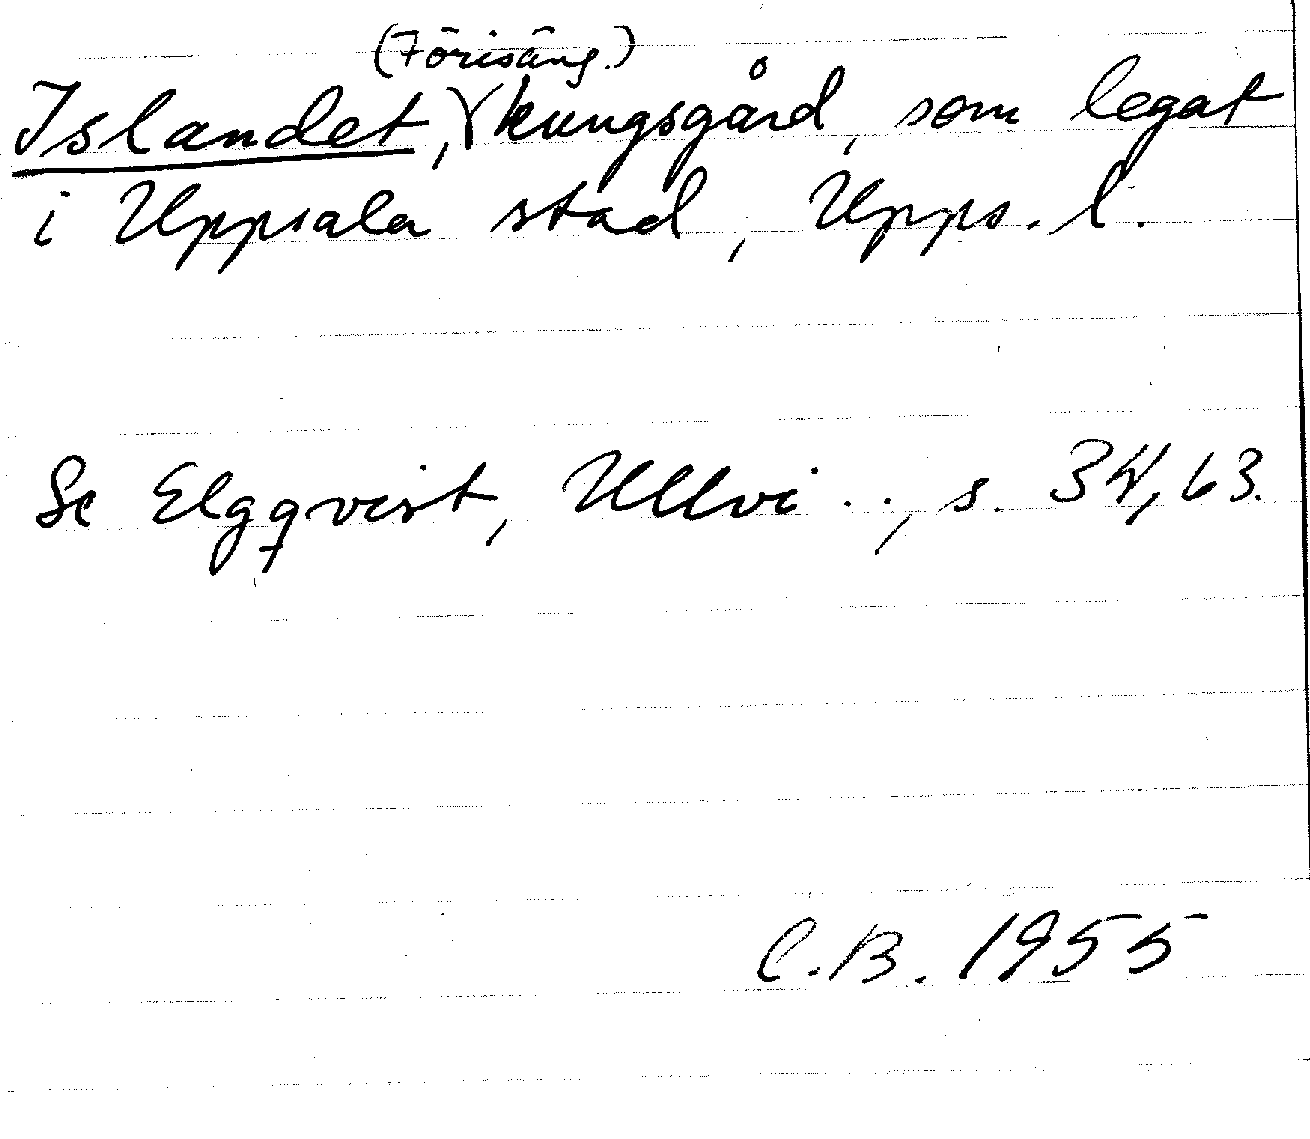 (Förisäng.)
Islandet, kungsgård, som legat
i Uppsala stad, Upps. l.
Se Elgqvist, Ullvi .., s. 34, 63.
C.B. 1955